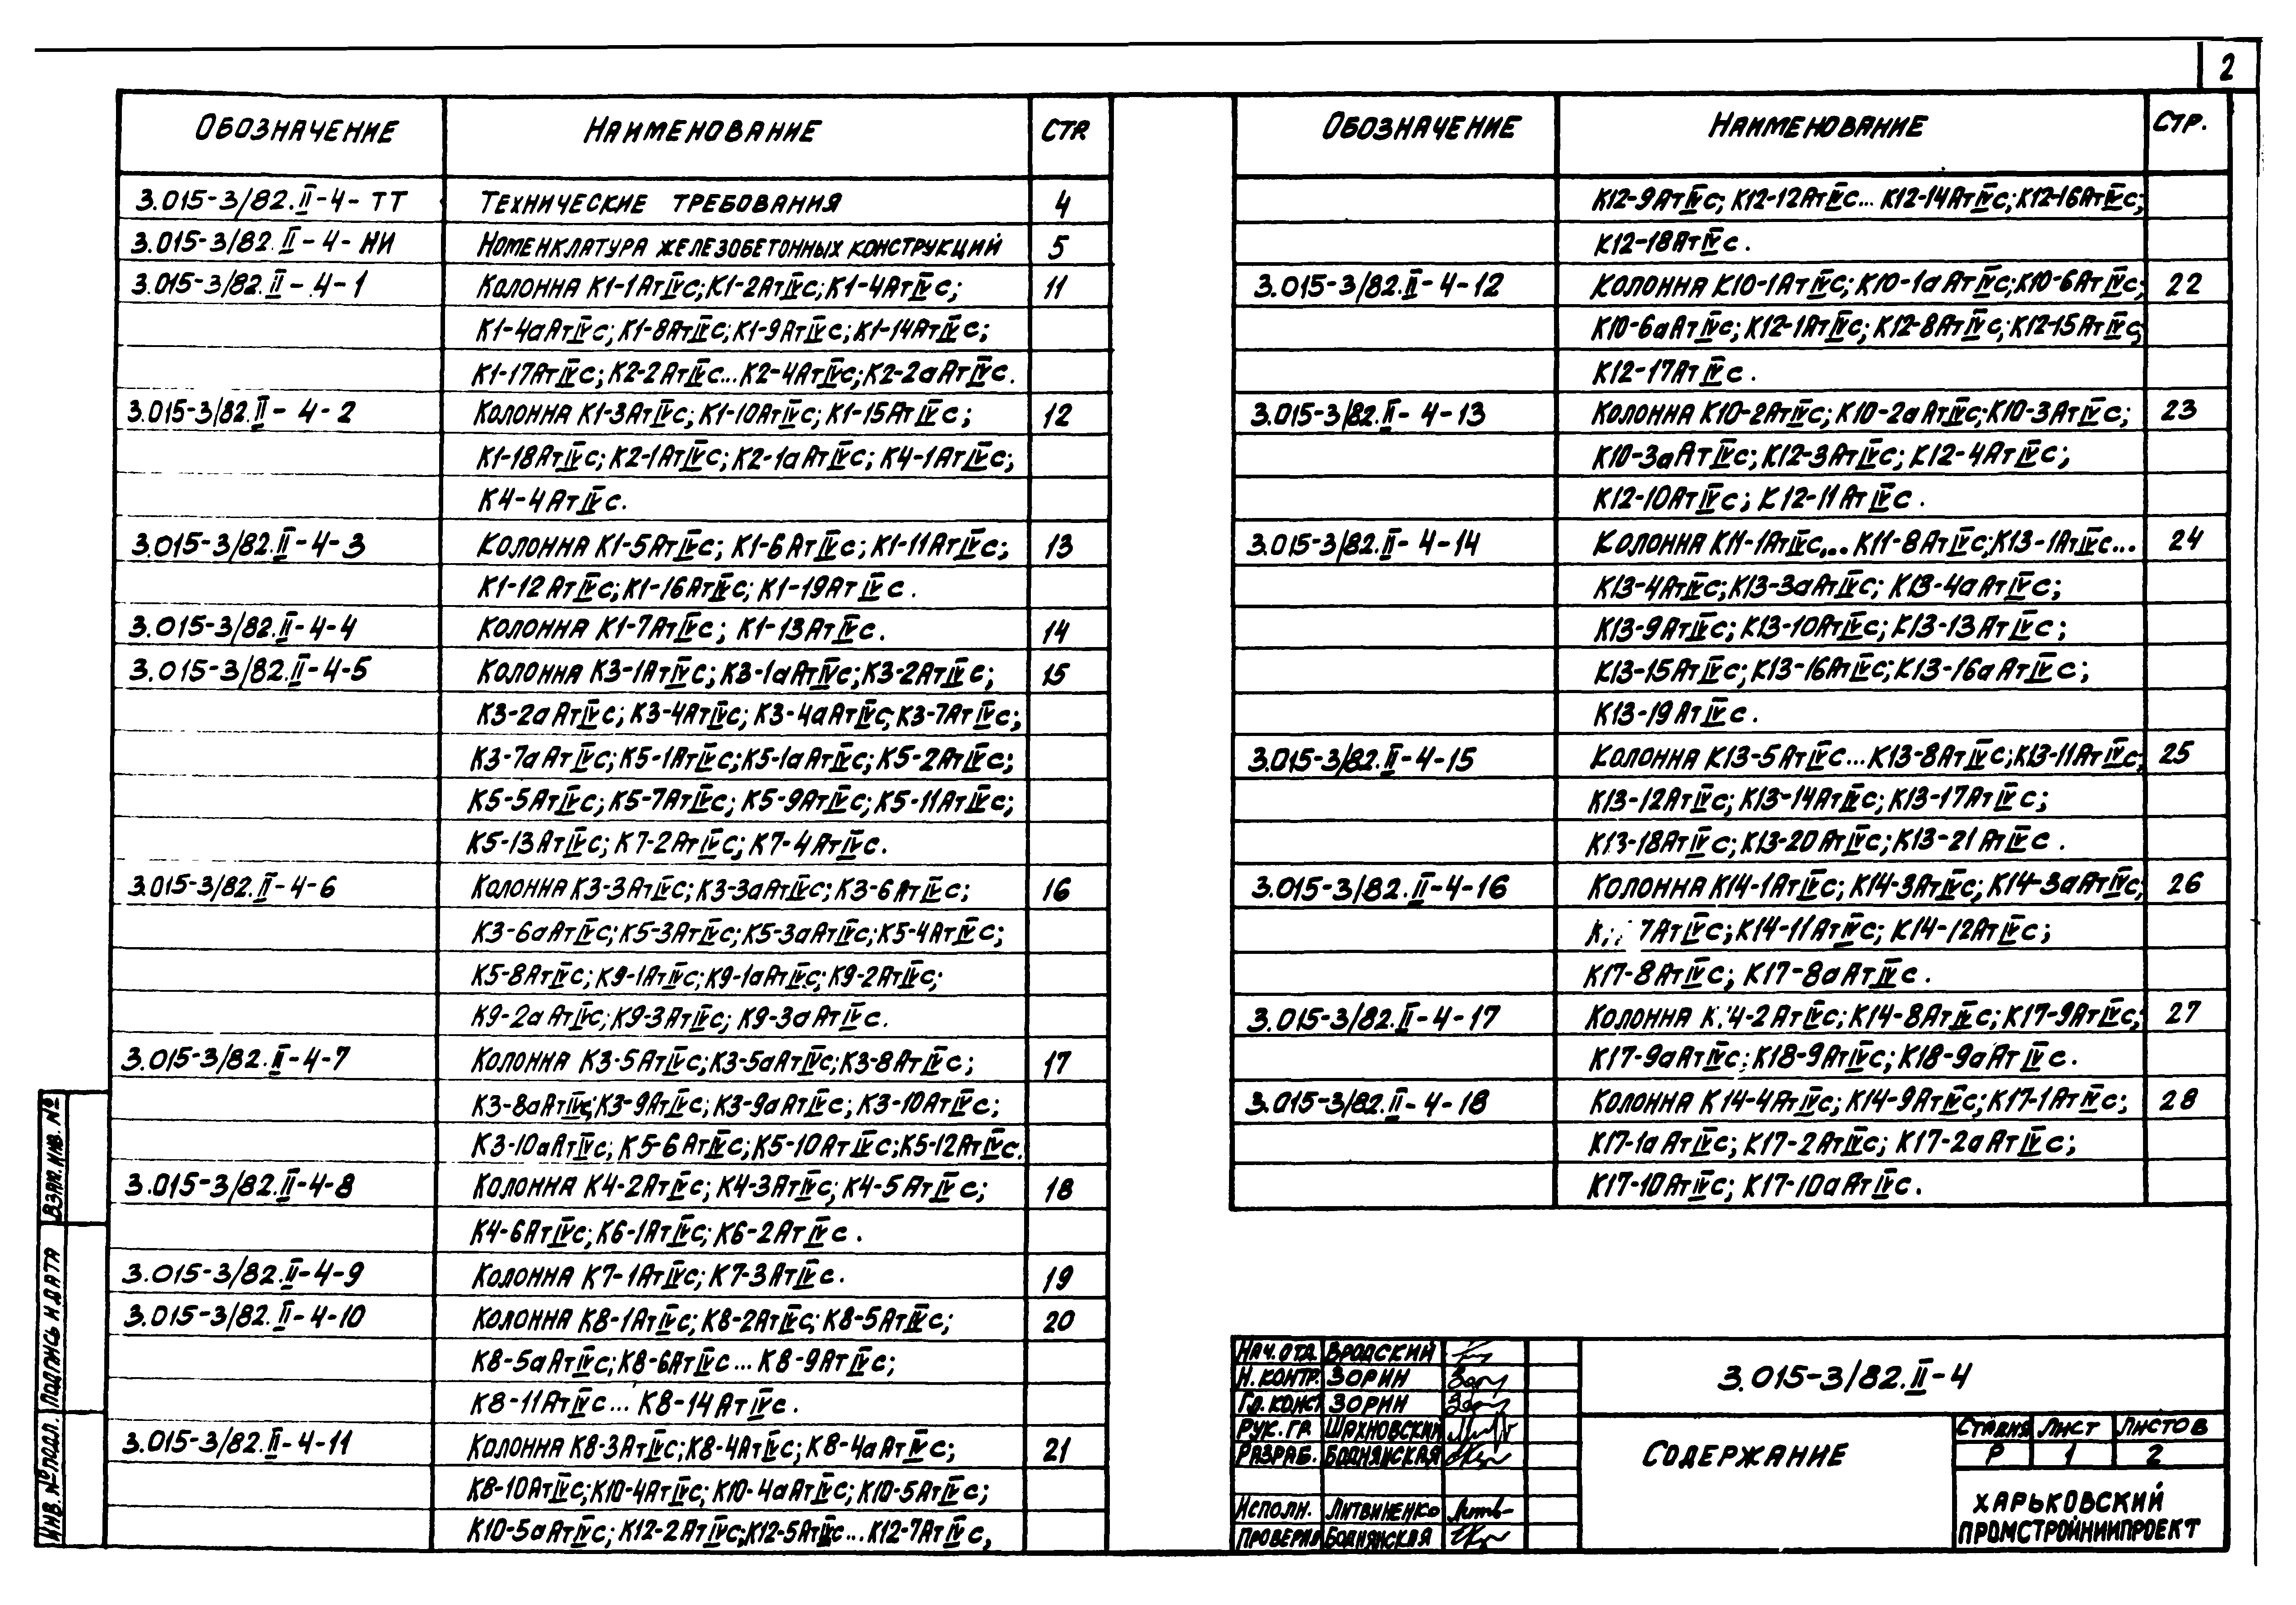 2
ОБОЗНАЧЕНИЕ НАИМЕНОВАНИЕ СТР
3.015-3/82.II-4-ТТ ТЕХНИЧЕСКИЕ ТРЕБОВАНИЯ 4
3.015-3/82.II-4-НИ НОМЕНКЛАТУРА ЖЕЛЕЗОБЕТОННЫХ КОНСТРУКЦИЙ 5
3.015-3/82.II-4-1 КОЛОННА К1-1АтIVс; К1-2АтIVс; К1-4АтIVс; 11
К1-4аАтIVс; К1-8АтIVс; К1-9АтIVс; К1-14АтIVс;
К1-17АтIVс; К2-2АтIVс... К2-4АтIVс; К2-2аАтIVс.
3.015-3/82.II-4-2 КОЛОННА К1-3АтIVс; К1-10АтIVс; К1-15АтIVс; 12
К1-18АтIVс; К2-1АтIVс; К2-1аАтIVс; К4-1АтIVс;
К4-4АтIVс.
3.015-3/82.II-4-3 КОЛОННА К1-5АтIVс; К1-6АтIVс; К1-11АтIVс; 13
К1-12АтIVс; К1-16АтIVс; К1-19АтIVс.
3.015-3/82.II-4-4 КОЛОННА К1-7АтIVс; К1-13АтIVс. 14
3.015-3/82.II-4-5 КОЛОННА К3-1АтIVс; К3-1аАтIVс; К3-2АтIVс; 15
К3-2аАтIVс; К3-4АтIVс; К3-4аАтIVс; К3-7АтIVс;
К3-7аАтIVс; К5-1АтIVс; К5-1аАтIVс; К5-2АтIVс;
К5-5АтIVс; К5-7АтIVс; К5-9АтIVс; К5-11АтIVс;
К5-13АтIVс; К7-2АтIVс; К7-4АтIVс.
3.015-3/82.II-4-6 КОЛОННА К3-3АтIVс; К3-3аАтIVс; К3-6АтIVс; 16
К3-6аАтIVс; К5-3АтIVс; К5-3аАтIVс; К5-4АтIVс;
К5-8АтIVс; К9-1АтIVс; К9-1аАтIVс; К9-2АтIVс;
К9-2аАтIVс; К9-3АтIVс; К9-3аАтIVс.
3.015-3/82.II-4-7 КОЛОННА К3-5АтIVс; К3-5аАтIVс; К3-8АтIVс; 17
К3-8аАтIVс; К3-9АтIVс; К3-9аАтIVс; К3-10АтIVс;
К3-10аАтIVс; К5-6АтIVс; К5-10АтIVс; К5-12АтIVс.
3.015-3/82.II-4-8 КОЛОННА К4-2АтIVс; К4-3АтIVс; К4-5АтIVс; 18
К4-6АтIVс; К6-1АтIVс; К6-2АтIVс.
3.015-3/82.II-4-9 КОЛОННА К7-1АтIVс; К7-3АтIVс. 19
3.015-3/82.II-4-10 КОЛОННА К8-1АтIVс; К8-2АтIVс; К8-5АтIVс; 20
К8-5аАтIVс; К8-6АтIVс... К8-9АтIVс;
К8-11АтIVс... К8-14АтIVс.
3.015-3/82.II-4-11 КОЛОННА К8-3АтIVс; К8-4АтIVс; К8-4аАтIVс; 21
К8-10АтIVс; К10-4АтIVс; К10-4аАтIVс; К10-5АтIVс;
К10-5аАтIVс; К12-2АтIVс; К12-5АтIVс... К12-7АтIVс,
ОБОЗНАЧЕНИЕ НАИМЕНОВАНИЕ СТР.
К12-9АтIVс; К12-12АтIVс... К12-14АтIVс; К12-16АтIVс;
К12-18АтIVс.
3.015-3/82.II-4-12 КОЛОННА К10-1АтIVс; К10-1аАтIVс; К10-6АтIVс; 22
К10-6аАтIVс; К12-1АтIVс; К12-8АтIVс; К12-15АтIVс;
К12-17АтIVс.
3.015-3/82.II-4-13 КОЛОННА К10-2АтIVс; К10-2аАтIVс; К10-3АтIVс; 23
К10-3аАтIVс; К12-3АтIVс; К12-4АтIVс;
К12-10АтIVс; К12-11АтIVс.
3.015-3/82.II-4-14 КОЛОННА К11-1АтIVс... К11-8АтIVс; К13-1АтIVс... 24
К13-4АтIVс; К13-3аАтIVс; К13-4аАтIVс;
К13-9АтIVс; К13-10АтIVс; К13-13АтIVс;
К13-15АтIVс; К13-16АтIVс; К13-16аАтIVс;
К13-19АтIVс.
3.015-3/82.II-4-15 КОЛОННА К13-5АтIVс... К13-8АтIVс; К13-11АтIVс; 25
К13-12АтIVс; К13-14АтIVс; К13-17АтIVс;
К13-18АтIVс; К13-20АтIVс; К13-21АтIVс.
3.015-3/82.II-4-16 КОЛОННА К14-1АтIVс; К14-3АтIVс; К14-3аАтIVс; 26
7АтIVс; К14-11АтIVс; К14-12АтIVс;
К17-8АтIVс; К17-8аАтIVс.
3.015-3/82.II-4-17 КОЛОННА 4-2АтIVс; К14-8АтIVс; К17-9АтIVс; 27
К17-9аАтIVс; К18-9АтIVс; К18-9аАтIVс.
3.015-3/82.II-4-18 КОЛОННА К14-4АтIVс; К14-9АтIVс; К17-1АтIVс; 28
К17-1аАтIVс; К17-2АтIVс; К17-2аАтIVс;
К17-10АтIVс; К17-10аАтIVс.
НАЧ. ОТД. БРОДСКИЙ
Н. КОНТР. ЗОРИН
ГЛ. КОНСТ ЗОРИН
РУК. ГР. ШАХНОВСКИЙ
РАЗРАБ. БОДНЯНСКАЯ
ИСПОЛН. ЛИТВИНЕНКО
ПРОВЕРИЛ БОДНЯНСКАЯ
3.015-3/82.II-4
СОДЕРЖАНИЕ
СТАДИЯ ЛИСТ ЛИСТОВ
Р 1 2
ХАРЬКОВСКИЙ
ПРОМСТРОЙНИИПРОЕКТ
ВЗАМ. ИНВ. №
ПОДПИСЬ И ДАТА
ИНВ. № ПОДЛ.